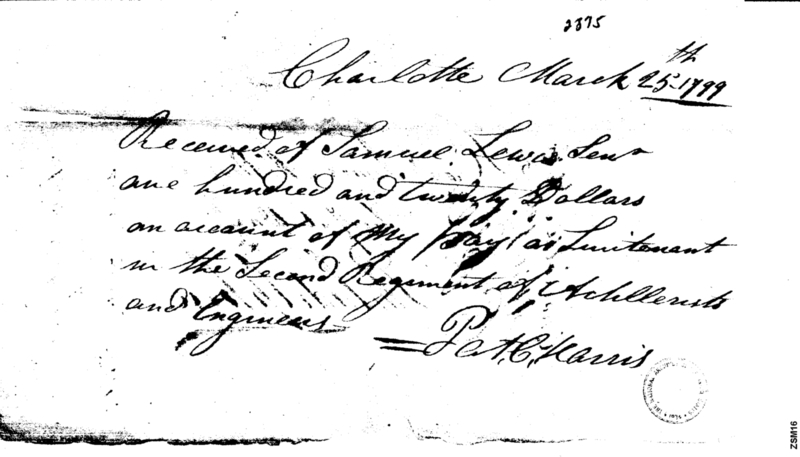 2375
Charlotte March 25th 1799
Received of Samuel Lewis Senr
one hundred and twenty Dollars
on account of My Pay as Lieutenant
in the Second Regiment of Artillerists
and Engineers
A. C. Harris
ZSM16